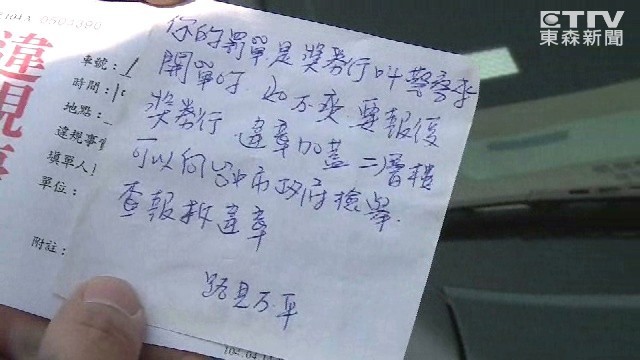 ETTV
東森新聞
違規
車號：
時間：
地點：
違規事
填單人
單位：
附註：
你的罰單是獎券行叫警察來
開單的 如不爽要報復
獎券行 違章加蓋二層樓
可以向台中市政府檢舉.
查報拆違章
路見不平